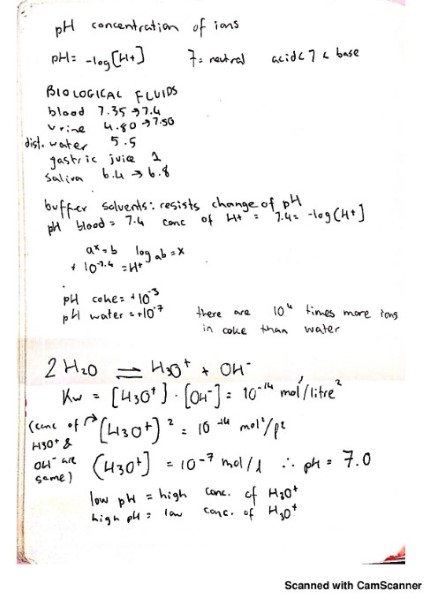 pH concentration of ions
pH = -log[H+] 7 = neutral acid < 7 < base
BIOLOGICAL FLUIDS
blood 7.35 → 7.4
urine 4.80 → 7.50
dist. water 5.5
gastric juice 1
saliva 6.4 → 6.8
buffer solvents: resists change of pH
pH blood = 7.4 conc of H+ = 7.4 = -log(H+)
aˣ = b log ab = x
+ 10⁻⁷·⁴ = H+
pH coke = +10⁻³
pH water = +10⁻⁷
there are 10⁴ times more ions
in coke than water
2 H₂O ⇌ H₃O⁺ + OH⁻
Kw = [H₃O⁺] · [OH⁻] = 10⁻¹⁴ mol²/litre²
(conc of H3O⁺ & OH⁻ are same)
[H₃O⁺]² = 10⁻¹⁴ mol²/l²
(H₃O⁺] = 10⁻⁷ mol/l ∴ pH = 7.0
low pH = high conc. of H₃O⁺
high pH = low conc. of H₃O⁺
Scanned with CamScanner